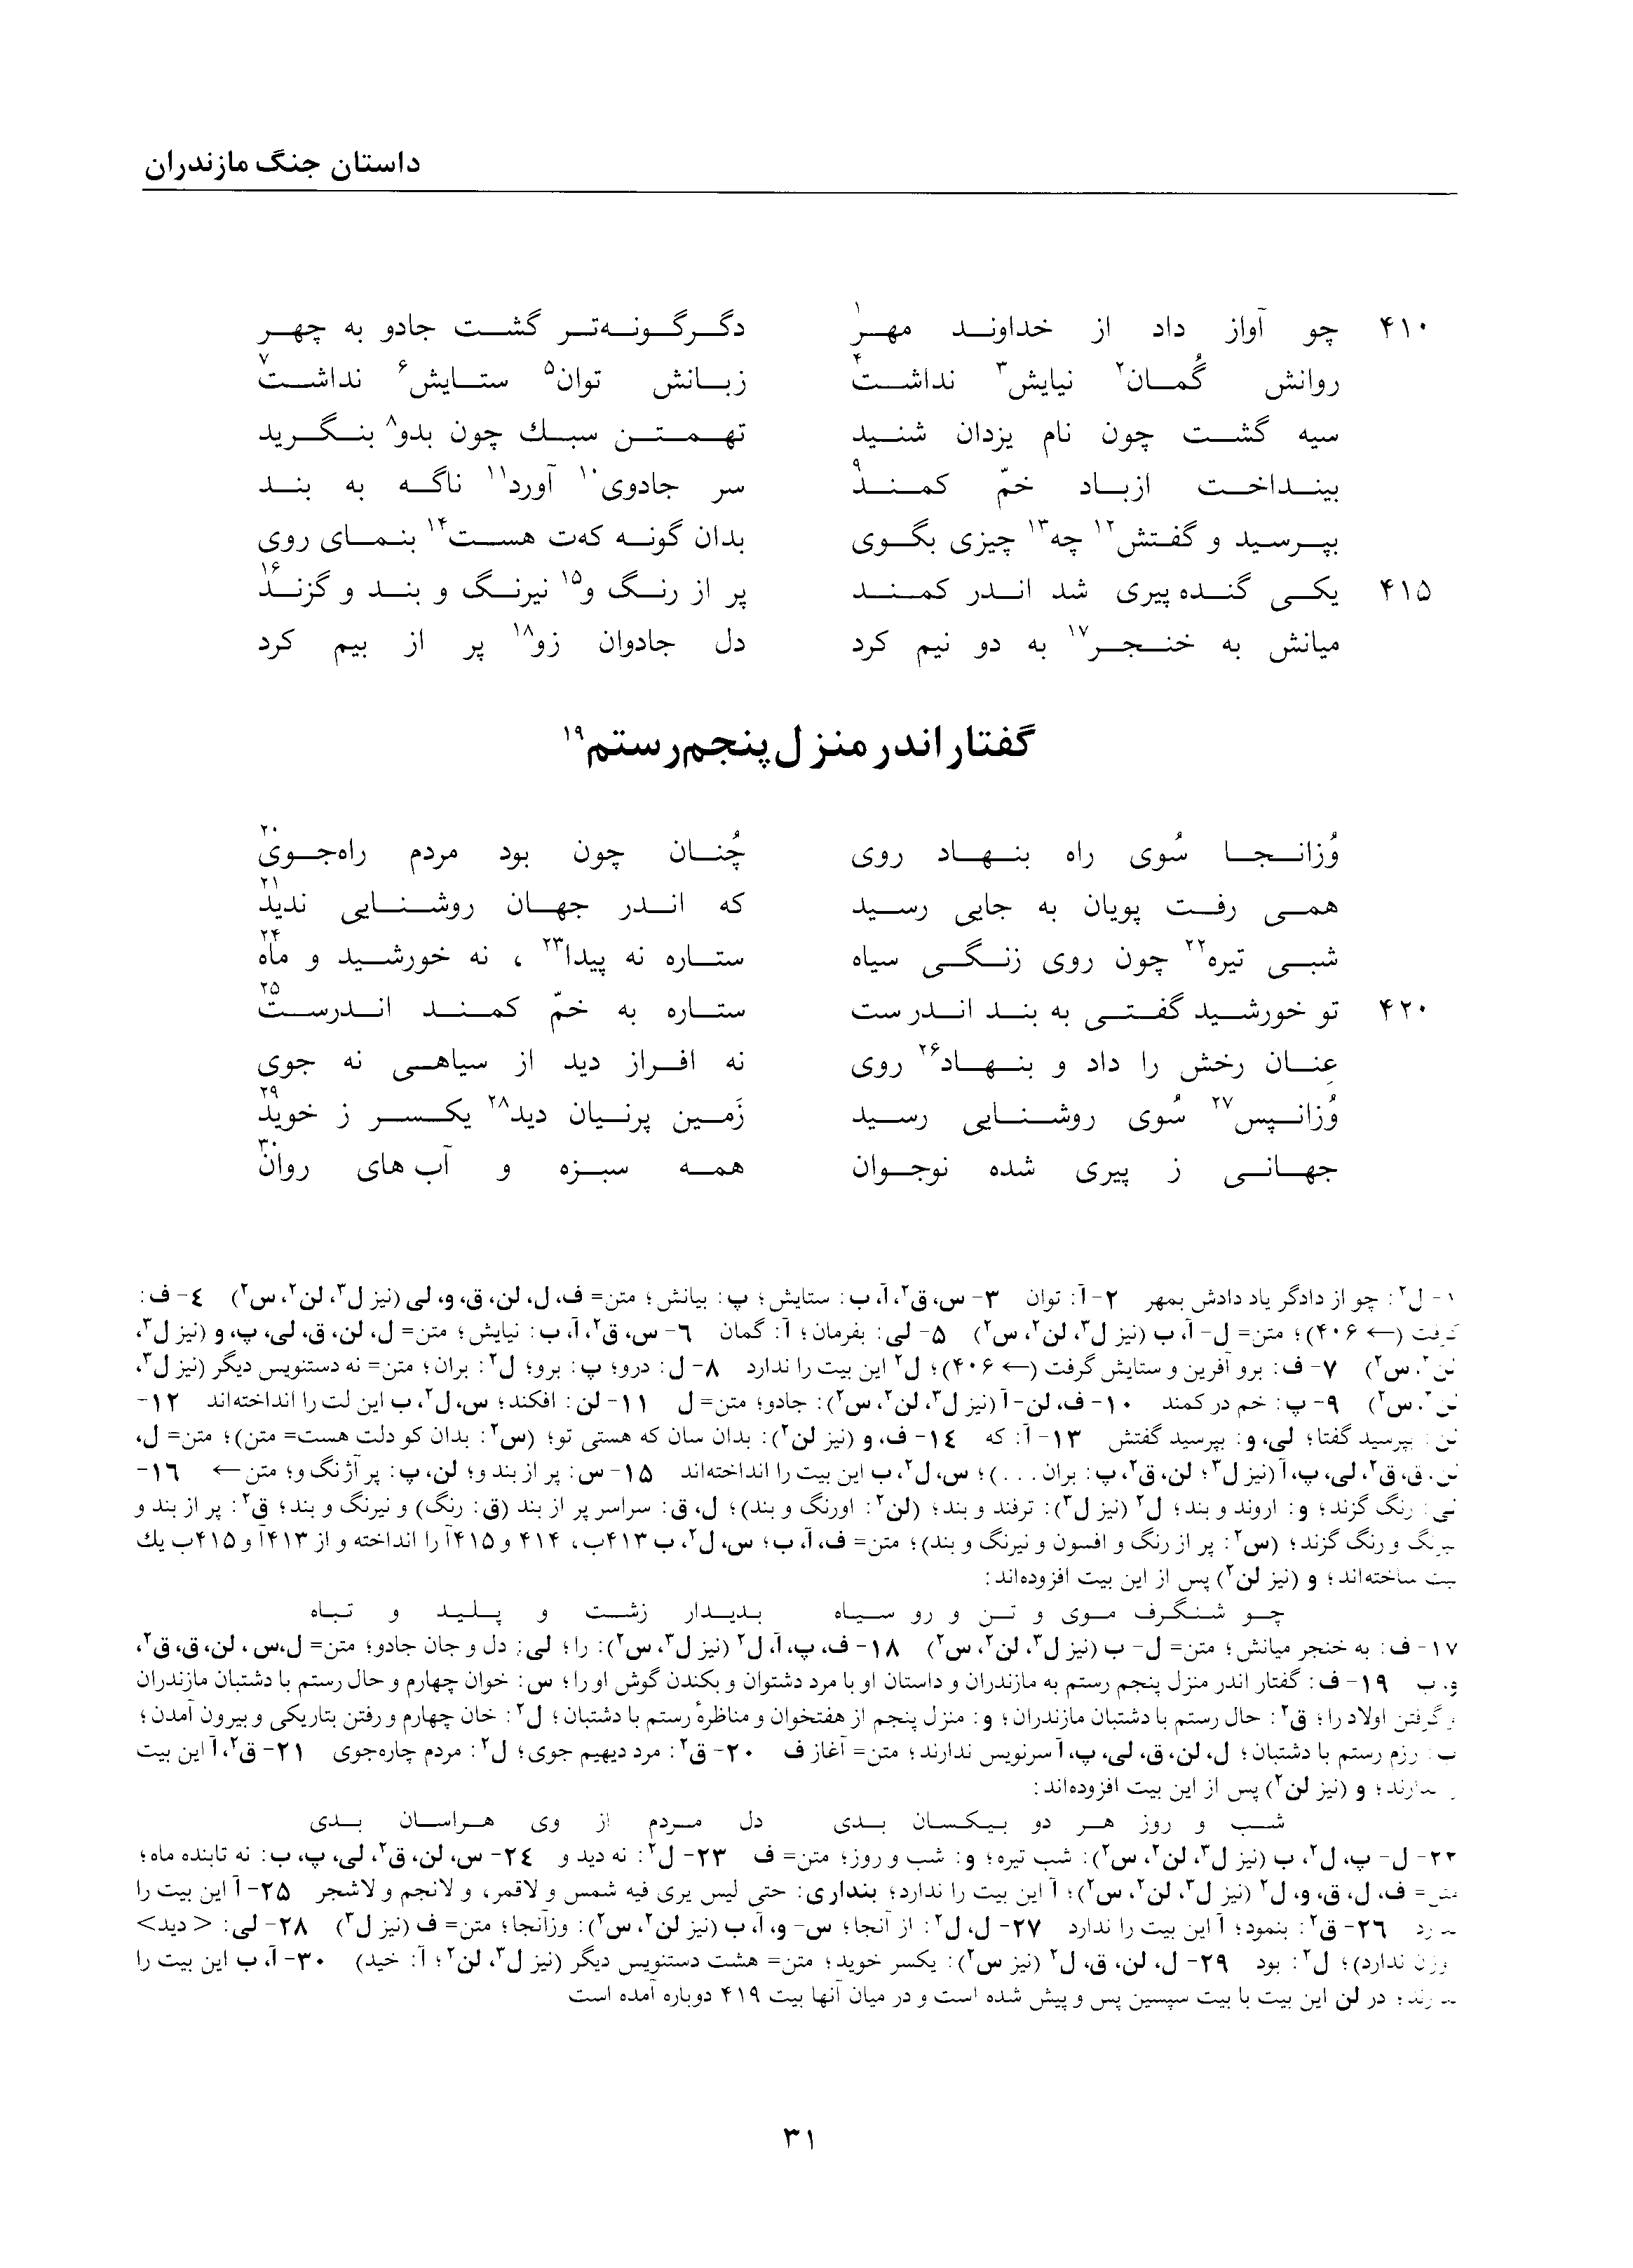 داستان جنگ مازندران
۴۱۰ چو آواز داد از خداوند مهر۱ دگرگونه‌تر گشت جادو به چهر
روانش گُمان۲ نیایش۳ نداشت۴ زبانش توان۵ ستایش۶ نداشت۷
سیه گشت چون نام یزدان شنید تهمتن سبك چون بدو۸ بنگرید
بینداخت ازباد خمّ کمند۹ سر جادوی۱۰ آورد۱۱ ناگه به بند
بپرسید و گفتش۱۲ چه۱۳ چیزی بگوی بدان گونه که‌ت هست۱۴ بنمای روی
۴۱۵ یکی گنده پیری شد اندر کمند پر از رنگ و۱۵ نیرنگ و بند و گزند۱۶
میانش به خنجر۱۷ به دو نیم کرد دل جادوان زو۱۸ پر از بیم کرد
گفتار اندر منزل پنجم رستم۱۹
وُزانجا سُوی راه بنهاد روی چُنان چون بود مردم راه‌جوی۲۰
همی رفت پویان به جایی رسید که اندر جهان روشنایی ندید۲۱
شبی تیره۲۲ چون روی زنگی سیاه ستاره نه پیدا۲۳، نه خورشید و ماه۲۴
۴۲۰ تو خورشید گفتی به بند اندرست ستاره به خمّ کمند اندرست۲۵
عِنان رخش را داد و بنهاد۲۶ روی نه افراز دید از سیاهی نه جوی
وُزانپس۲۷ سُوی روشنایی رسید زَمین پرنیان دید۲۸ یکسر ز خوید۲۹
جهانی ز پیری شده نوجوان همه سبزه و آب‌های روان۳۰
۱- ل۲: چو از دادگر یاد دادش بمهر ۲- آ: توان ۳- س، ق۲، آ، ب: ستایش؛ پ: بیانش؛ متن= ف، ل، لن، ق، و، لی (نیز ل۳، لن۲، س۲) ۴- ف:
گرفت (← ۴۰۶)؛ متن= ل- آ، ب (نیز ل۳، لن۲، س۲) ۵- لی: بفرمان؛ آ: گمان ۶- س، ق۲، آ، ب: نیایش؛ متن= ل، لن، ق، لی، پ، و (نیز ل۳،
لن۲، س۲) ۷- ف: برو آفرین و ستایش گرفت (← ۴۰۶)؛ ل۲ این بیت را ندارد ۸- ل: درو؛ پ: برو؛ ل۲: بران؛ متن= نه دستنویس دیگر (نیز ل۳،
لن۲، س۲) ۹- پ: خم در کمند ۱۰- ف، لن- آ (نیز ل۳، لن۲، س۲): جادو؛ متن= ل ۱۱- لن: افکند؛ س، ل۲، ب این لت را انداخته‌اند ۱۲-
لن: بپرسید گفتا؛ لی، و: بپرسید گفتش ۱۳- آ: که ۱۴- ف، و (نیز لن۲): بدان سان که هستی تو؛ (س۲: بدان کو دلت هست= متن)؛ متن= ل،
لن، ق، ق۲، لی، پ، آ (نیز ل۳؛ لن، ق۲، پ: بران . . .)؛ س، ل۲، ب این بیت را انداخته‌اند ۱۵- س: پر از بند و؛ لن، پ: پر آژنگ و؛ متن← ۱۶-
لی: رنگ گزند؛ و: اروند و بند؛ ل۲ (نیز ل۳): ترفند و بند؛ (لن۲: اورنگ و بند)؛ ل، ق: سراسر پر از بند (ق: رنگ) و نیرنگ و بند؛ ق۲: پر از بند و
نیرنگ و رنگ گزند؛ (س۲: پر از رنگ و افسون و نیرنگ و بند)؛ متن= ف، آ، ب؛ س، ل۲، ب ۴۱۳ب، ۴۱۴ و ۴۱۵آ را انداخته و از ۴۱۳آ و ۴۱۵ب یك
بیت ساخته‌اند؛ و (نیز لن۲) پس از این بیت افزوده‌اند:
چو شنگرف موی و تن و رو سیاه بدیدار زشت و پلید و تباه
۱۷- ف: به خنجر میانش؛ متن= ل- ب (نیز ل۳، لن۲، س۲) ۱۸- ف، پ، آ، ل۲ (نیز ل۳، س۲): را؛ لی: دل و جان جادو؛ متن= ل، س، لن، ق، ق۲،
و، ب ۱۹- ف: گفتار اندر منزل پنجم رستم به مازندران و داستان او با مرد دشتوان و بکندن گوش او را؛ س: خوان چهارم و حال رستم با دشتبان مازندران
و گرفتن اولاد را؛ ق۲: حال رستم با دشتبان مازندران؛ و: منزل پنجم از هفتخوان و مناظرهٔ رستم با دشتبان؛ ل۲: خان چهارم و رفتن بتاریکی و بیرون آمدن؛
ب: رزم رستم با دشتبان؛ ل، لن، ق، لی، پ، آ سرنویس ندارند؛ متن= آغاز ف ۲۰- ق۲: مرد دیهیم جوی؛ ل۲: مردم چاره‌جوی ۲۱- ق۲، آ این بیت
را ندارند؛ و (نیز لن۲) پس از این بیت افزوده‌اند:
شب و روز هر دو بیکسان بدی دل مردم از وی هراسان بدی
۲۲- ل- پ، ل۲، ب (نیز ل۳، لن۲، س۲): شب تیره؛ و: شب و روز؛ متن= ف ۲۳- ل۲: نه دید و ۲۴- س، لن، ق۲، لی، پ، ب: نه تابنده ماه؛
متن= ف، ل، ق، و، ل۲ (نیز ل۳، لن۲، س۲)؛ آ این بیت را ندارد؛ بنداری: حتی لیس یری فیه شمس و لاقمر، و لانجم و لاشجر ۲۵- آ این بیت را
ندارد ۲۶- ق۲: بنمود؛ آ این بیت را ندارد ۲۷- ل، ل۲: از آنجا؛ س- و، آ، ب (نیز لن۲، س۲): وزآنجا؛ متن= ف (نیز ل۳) ۲۸- لی: <دید>
(وزن ندارد)؛ ل۲: بود ۲۹- ل، لن، ق، ل۲ (نیز س۲): یکسر خوید؛ متن= هشت دستنویس دیگر (نیز ل۳، لن۲؛ آ: خید) ۳۰- آ، ب این بیت را
ندارند؛ در لن این بیت با بیت سپسین پس و پیش شده است و در میان آنها بیت ۴۱۹ دوباره آمده است
۳۱